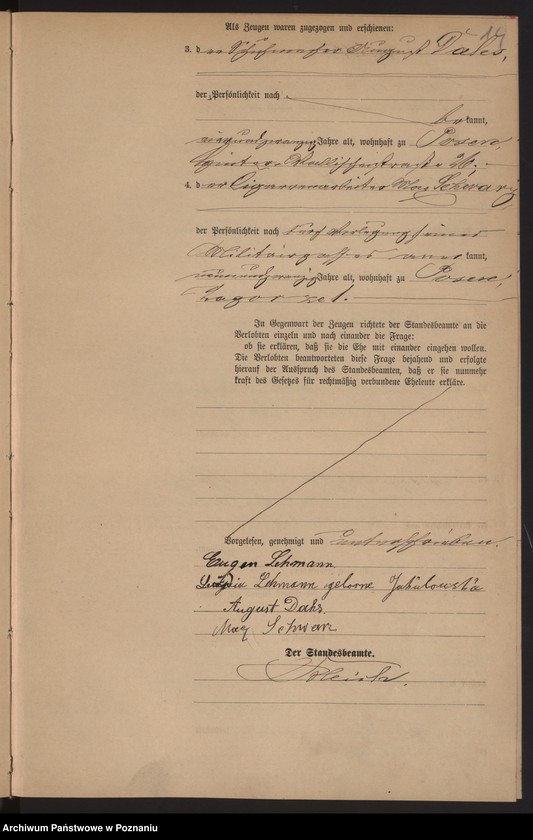 17
Als Zeugen waren zugezogen und erschienen:
3. der Schuhmacher August Daks,
der Persönlichkeit nach
bekannt,
vierundzwanzig Jahre alt, wohnhaft zu Posen,
Hinter-Wallischeistraße 26.
4. der Cigarrenarbeiter Max Schwarz
der Persönlichkeit nach durch Vorlegung seines
Militairpasses anerkannt,
neunundzwanzig Jahre alt, wohnhaft zu Posen,
Zagorze 1.
In Gegenwart der Zeugen richtete der Standesbeamte an die
Verlobten einzeln und nach einander die Frage:
ob sie erklären, daß sie die Ehe mit einander eingehen wollen.
Die Verlobten beantworteten diese Frage bejahend und erfolgte
hierauf der Ausspruch des Standesbeamten, daß er sie nunmehr
kraft des Gesetzes für rechtmäßig verbundene Eheleute erkläre.
Vorgelesen, genehmigt und unterschrieben.
Eugen Lehmann
Lehmann geborne Jakubowska
August Daks.
Max Schwarz
Der Standesbeamte.
Archiwum Państwowe w Poznaniu